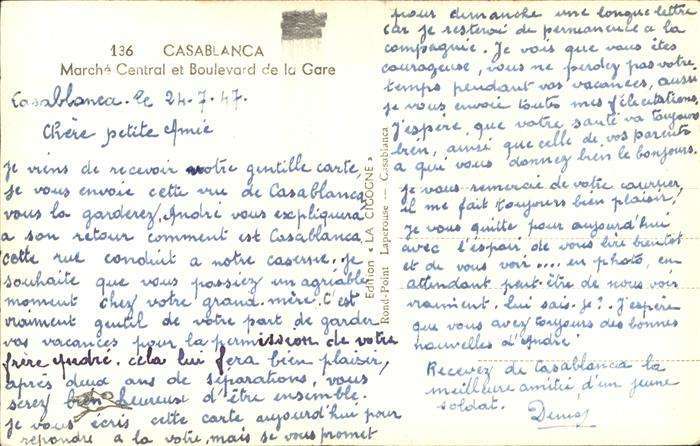 136 CASABLANCA
Marché Central et Boulevard de la Gare
Casablanca. le 24-7-47.
Chère petite Amie
Je viens de recevoir votre gentille carte,
je vous envoie cette vue de Casablanca
vous la garderez, André vous expliquera
a son retour comment est Casablanca,
cette rue conduit a notre caserne. je
souhaite que vous passiez un agréable
moment chez votre grand-mère. C'est
vraiment gentil de votre part de garder
vos vacances pour la permission de votre
frère André. cela lui fera bien plaisir,
après deux ans de séparations, vous
serez bien heureux d'être ensemble.
je vous écris cette carte aujourd'hui pour
répondre a la votre, mais je vous promet
Edition "LA CIGOGNE"
Rond-Point Laperouse — Casablanca
pour dimanche une longue lettre
car je resterai de permanence a la
compagnie. Je vois que vous êtes
courageuse, vous ne perdez pas votre
temps pendant vos vacances, aussi
je vous envoie toutes mes félicitations,
j'espère que votre santé va toujours
bien, ainsi que celle de vos parents
a qui vous donnez bien le bonjours.
je vous remercie de votre courrier,
il me fait toujours bien plaisir,
je vous quitte pour aujourd'hui
avec l'espoir de vous lire bientot
et de vous voir .... en photo, en
attendant peut-être de nous voir
vraiment. lui sais-je ? J'espère
que vous avez toujours des bonnes
nouvelles d'André
Recevez de Casablanca la
meilleure amitié d'un jeune
soldat. Denis